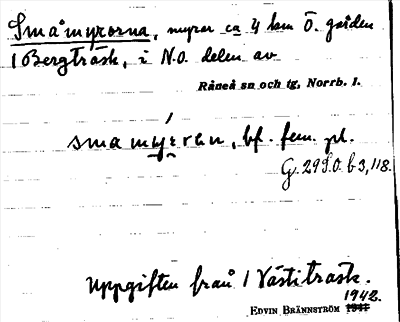 Småmyrorna, myrar ca 4 km Ö. gården
1 Bergträsk, i N.O. delen av
Råneå sn och tg, Norrb. l.
smamýran, bf. fem. pl.
G. 29 S.O. b 3, 118.
Uppgiften från 1 Västiträsk.
1942.
EDVIN BRÄNNSTRÖM 1941